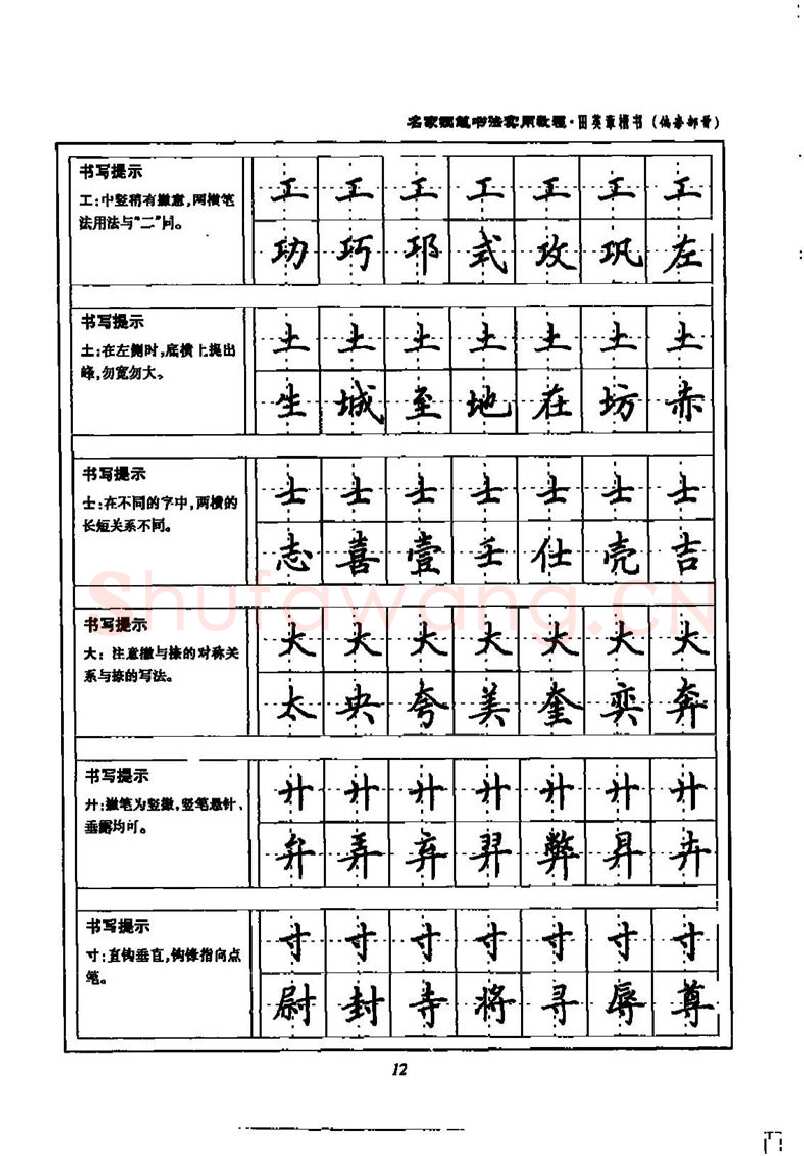 名家硬笔书法实用教程·田英章楷书（偏旁部首）
书写提示
工:中竖稍有撇意,两横笔
法用法与“二”同。
工工工工工工工
功巧邛式攻巩左
书写提示
土:在左侧时,底横上提出
峰,勿宽勿大。
土土土土土土土
生城至地在坊赤
书写提示
士:在不同的字中,两横的
长短关系不同。
士士士士士士士
志喜壹壬仕壳吉
书写提示
大:注意撇与捺的对称关
系与捺的写法。
大大大大大大大
太央夸美奎奕奔
书写提示
廾:撇笔为竖撇,竖笔悬针、
垂露均可。
廾廾廾廾廾廾廾
弁弄弃羿弊昇卉
书写提示
寸:直钩垂直,钩锋指向点
笔。
寸寸寸寸寸寸寸
尉封寺将寻辱尊
12
Shufawang.CN